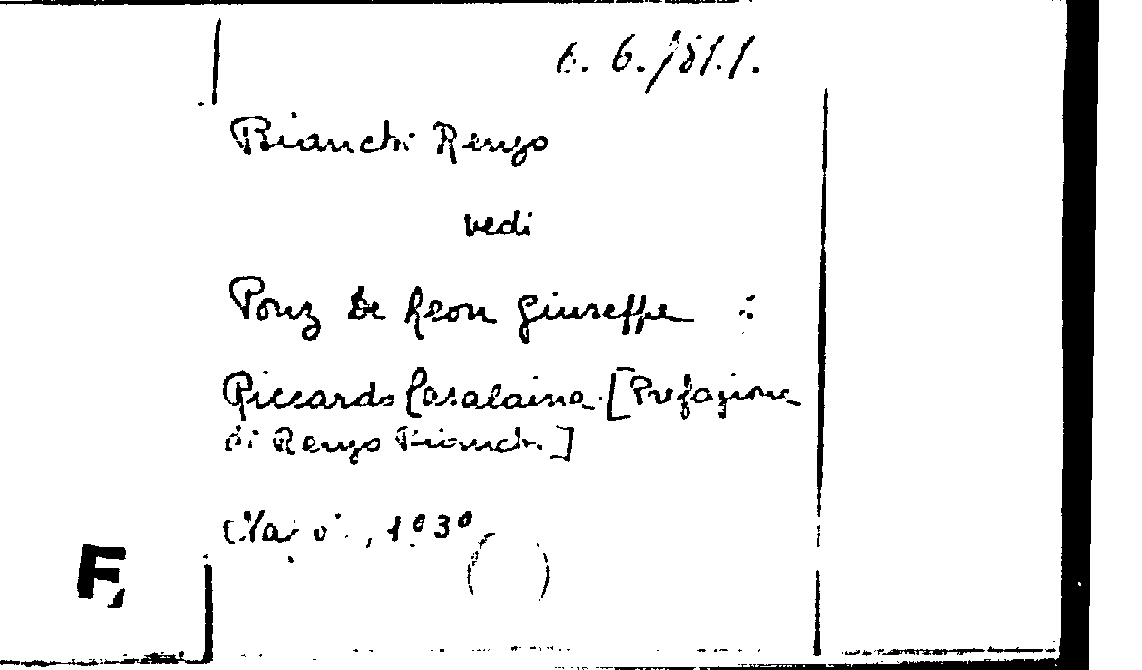 6. 6. /81.1.
Bianchi Renzo
vedi
Ponz De Leon Giuseppe :
Riccardo Casalaina [Prefazione
di Renzo Bianchi]
Napoli, 1930
F,
( )